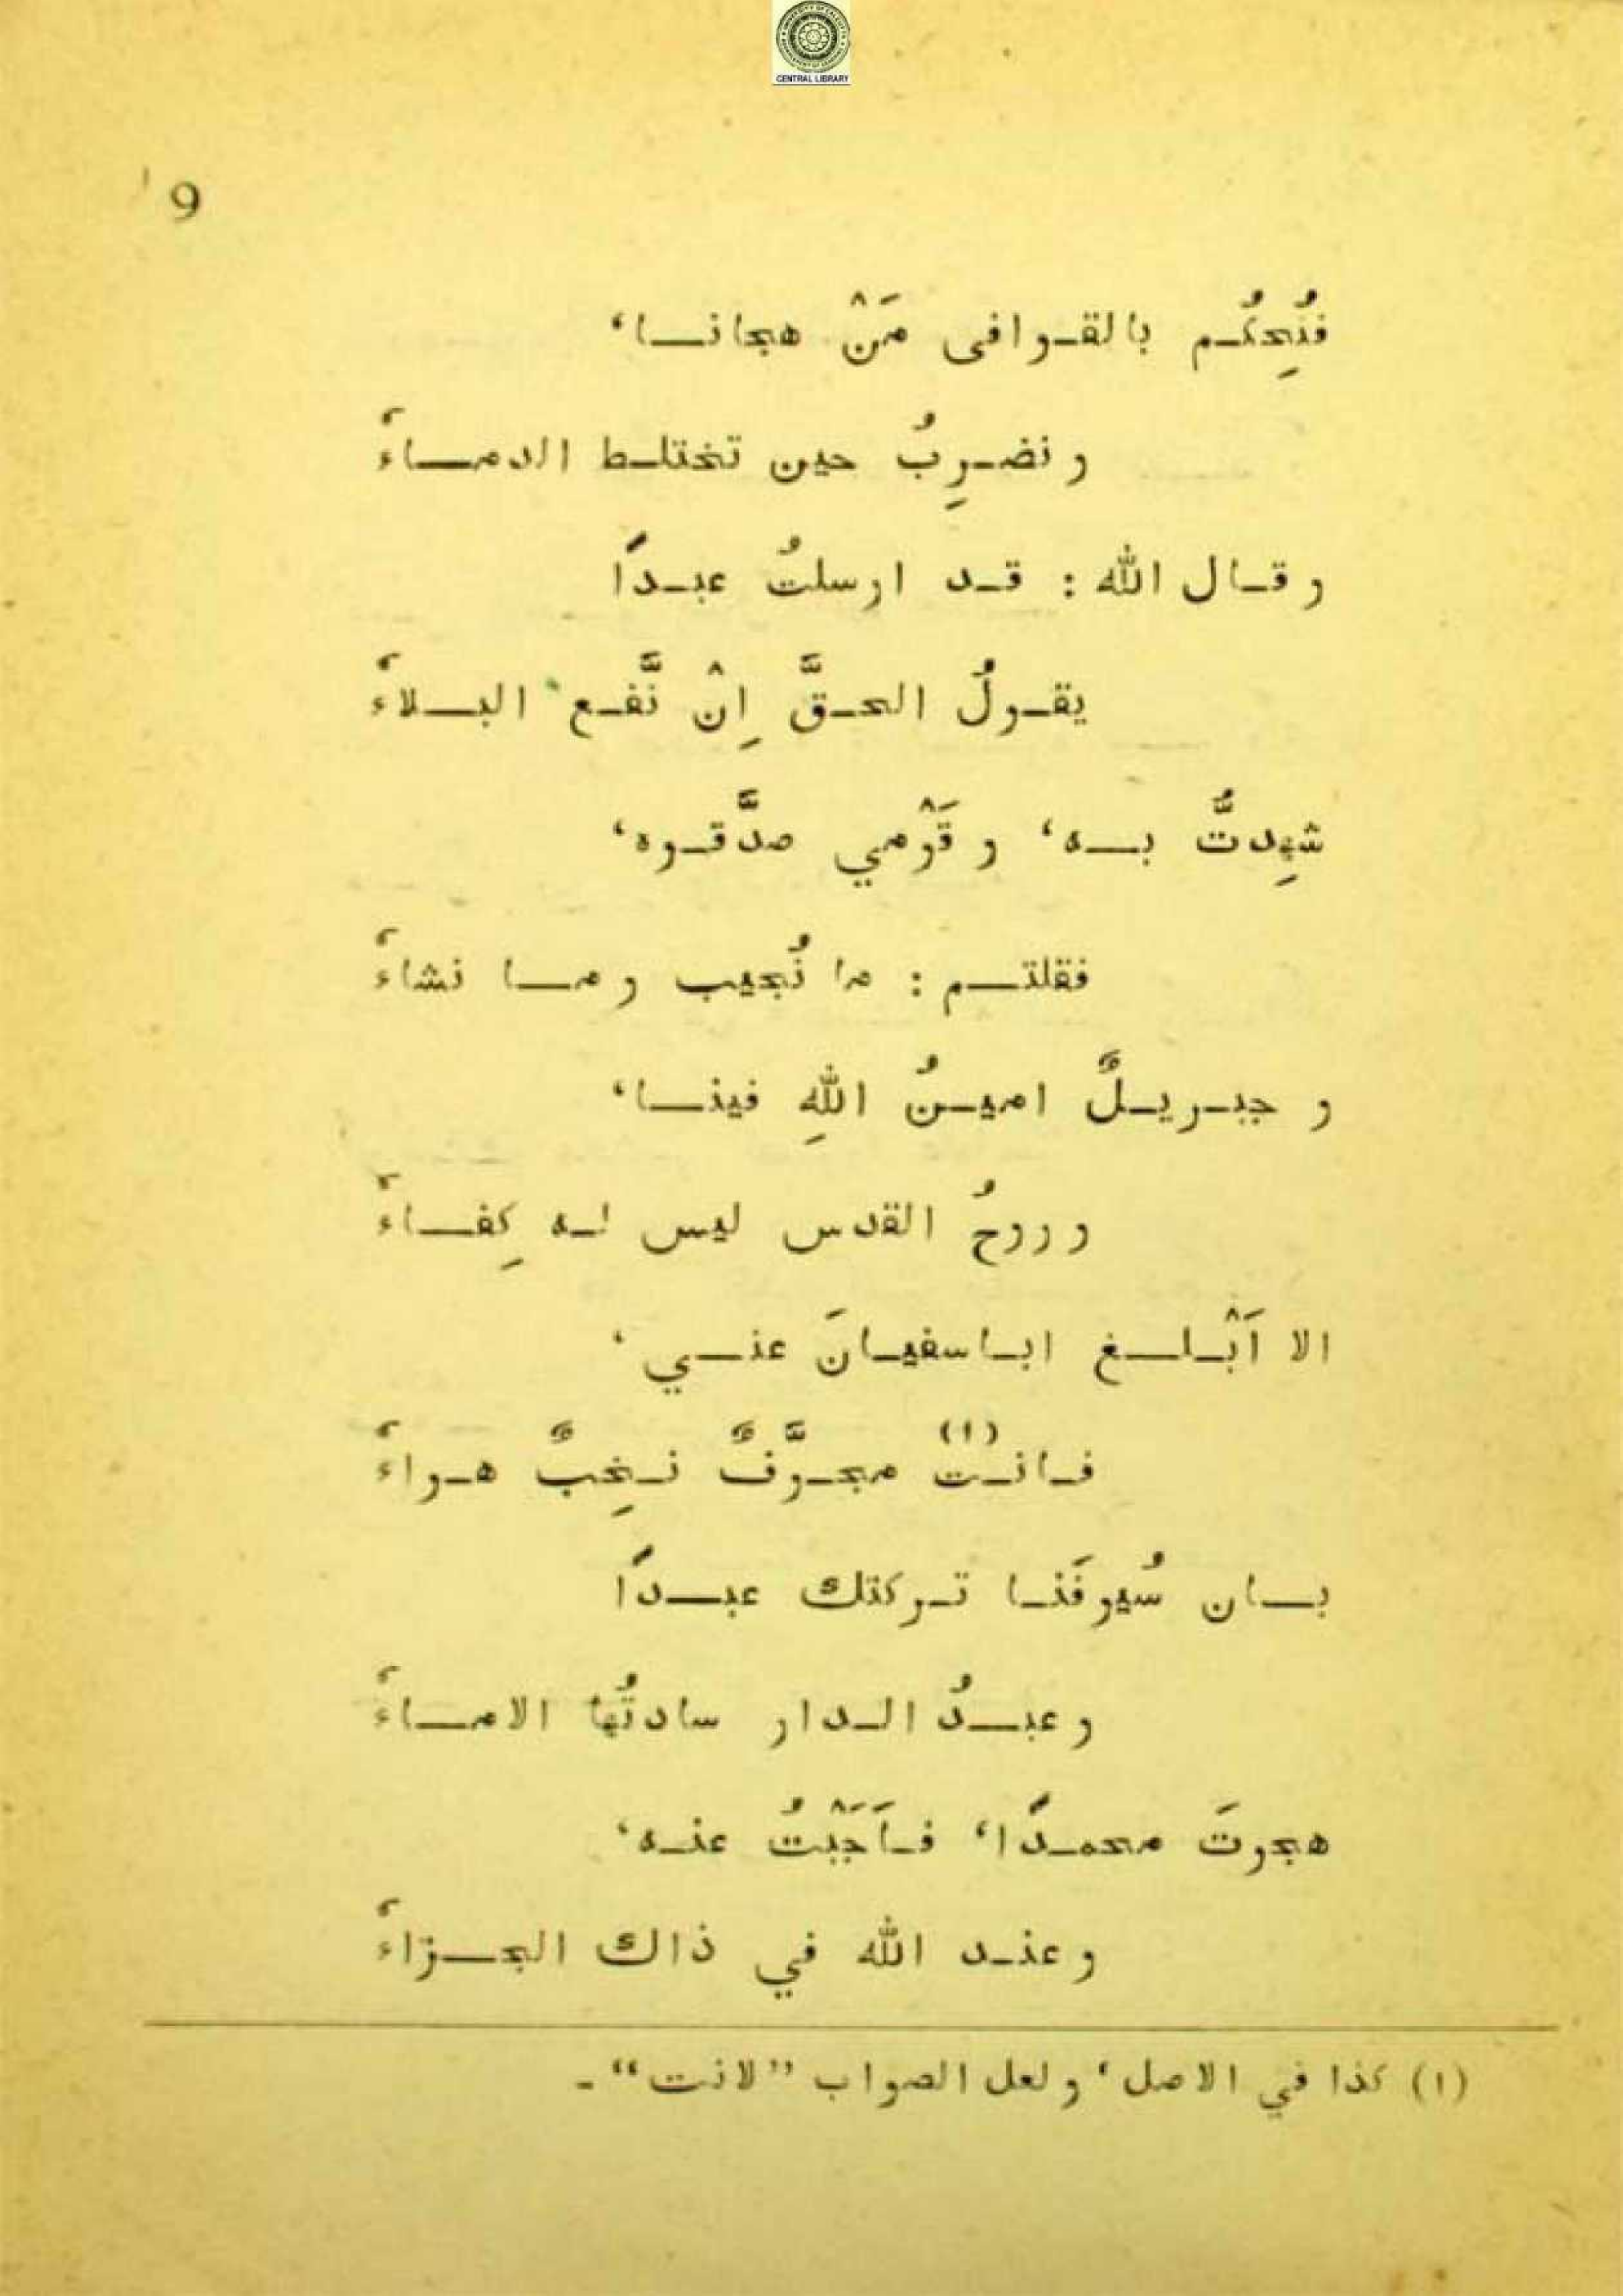 CENTRAL LIBRARY
9
فنُحِكُم بالقوافى مَنْ هجانا،
و نضرِبُ حين تختلط الدماءُ
و قال الله : قد ارسلتُ عبدًا
يقولُ الحقَّ اِنْ نَّفع البلاءُ
شهِدتُّ به، و قَوْمي صدَّقوه،
فقلتم : ما نُجيب و ما نشاءُ
و جبريلٌ امينُ اللهِ فينا،
و روحُ القدس ليس له كِفاءُ
الا اَبْلغ اباسفيانَ عني،
فانت (١) مجوَّفٌ نخِبٌ هواءُ
بان سُيوفَنا تركتك عبدًا
و عبدُ الدار سادتُها الاماءُ
هجوتَ محمدًا، فاَجَبْتُ عنه،
و عند الله في ذاك الجزاءُ
(١) كذا في الاصل، و لعل الصواب ”لانت“ ـ